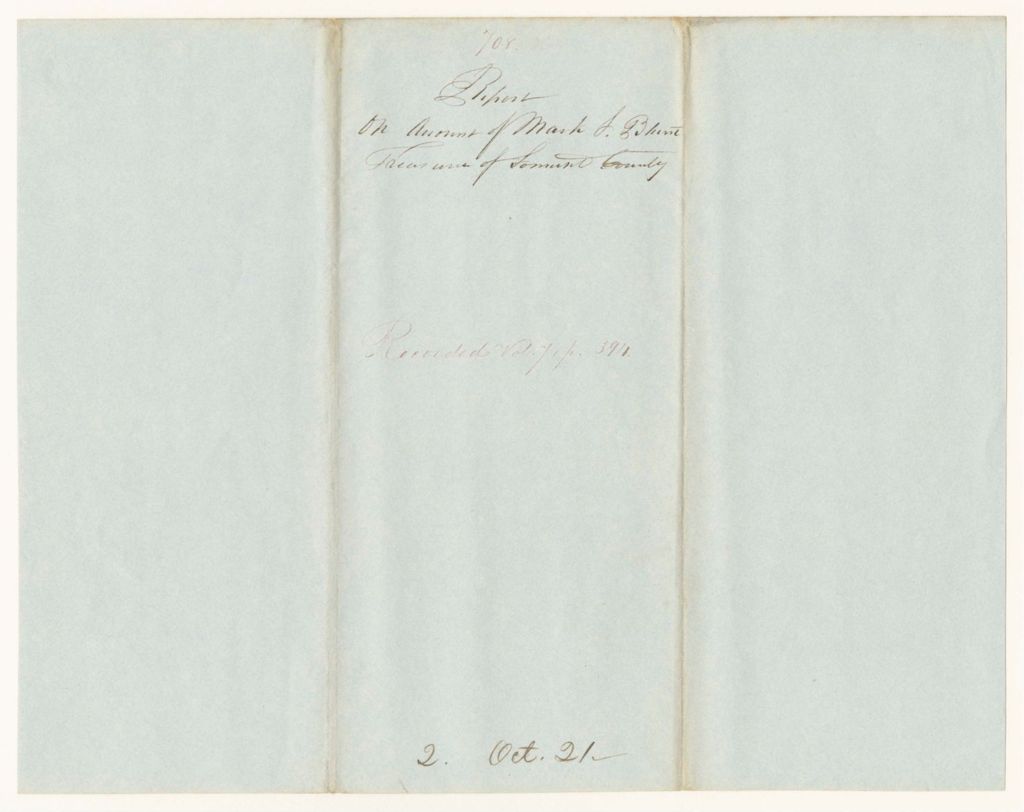 708.
Report
On Account of Mark S. Blunt
Treasurer of Somerset County
Recorded Vol. 7, p. 394.
2. Oct. 21